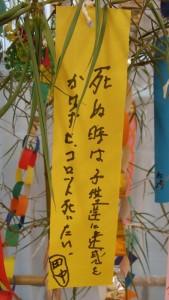 死ぬ時は子供達に迷惑を
かけずピンコロッと死にたい。
田中